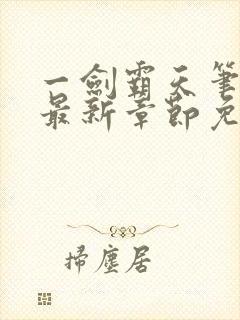 一劍霸天筆
最新章節免
掃塵居